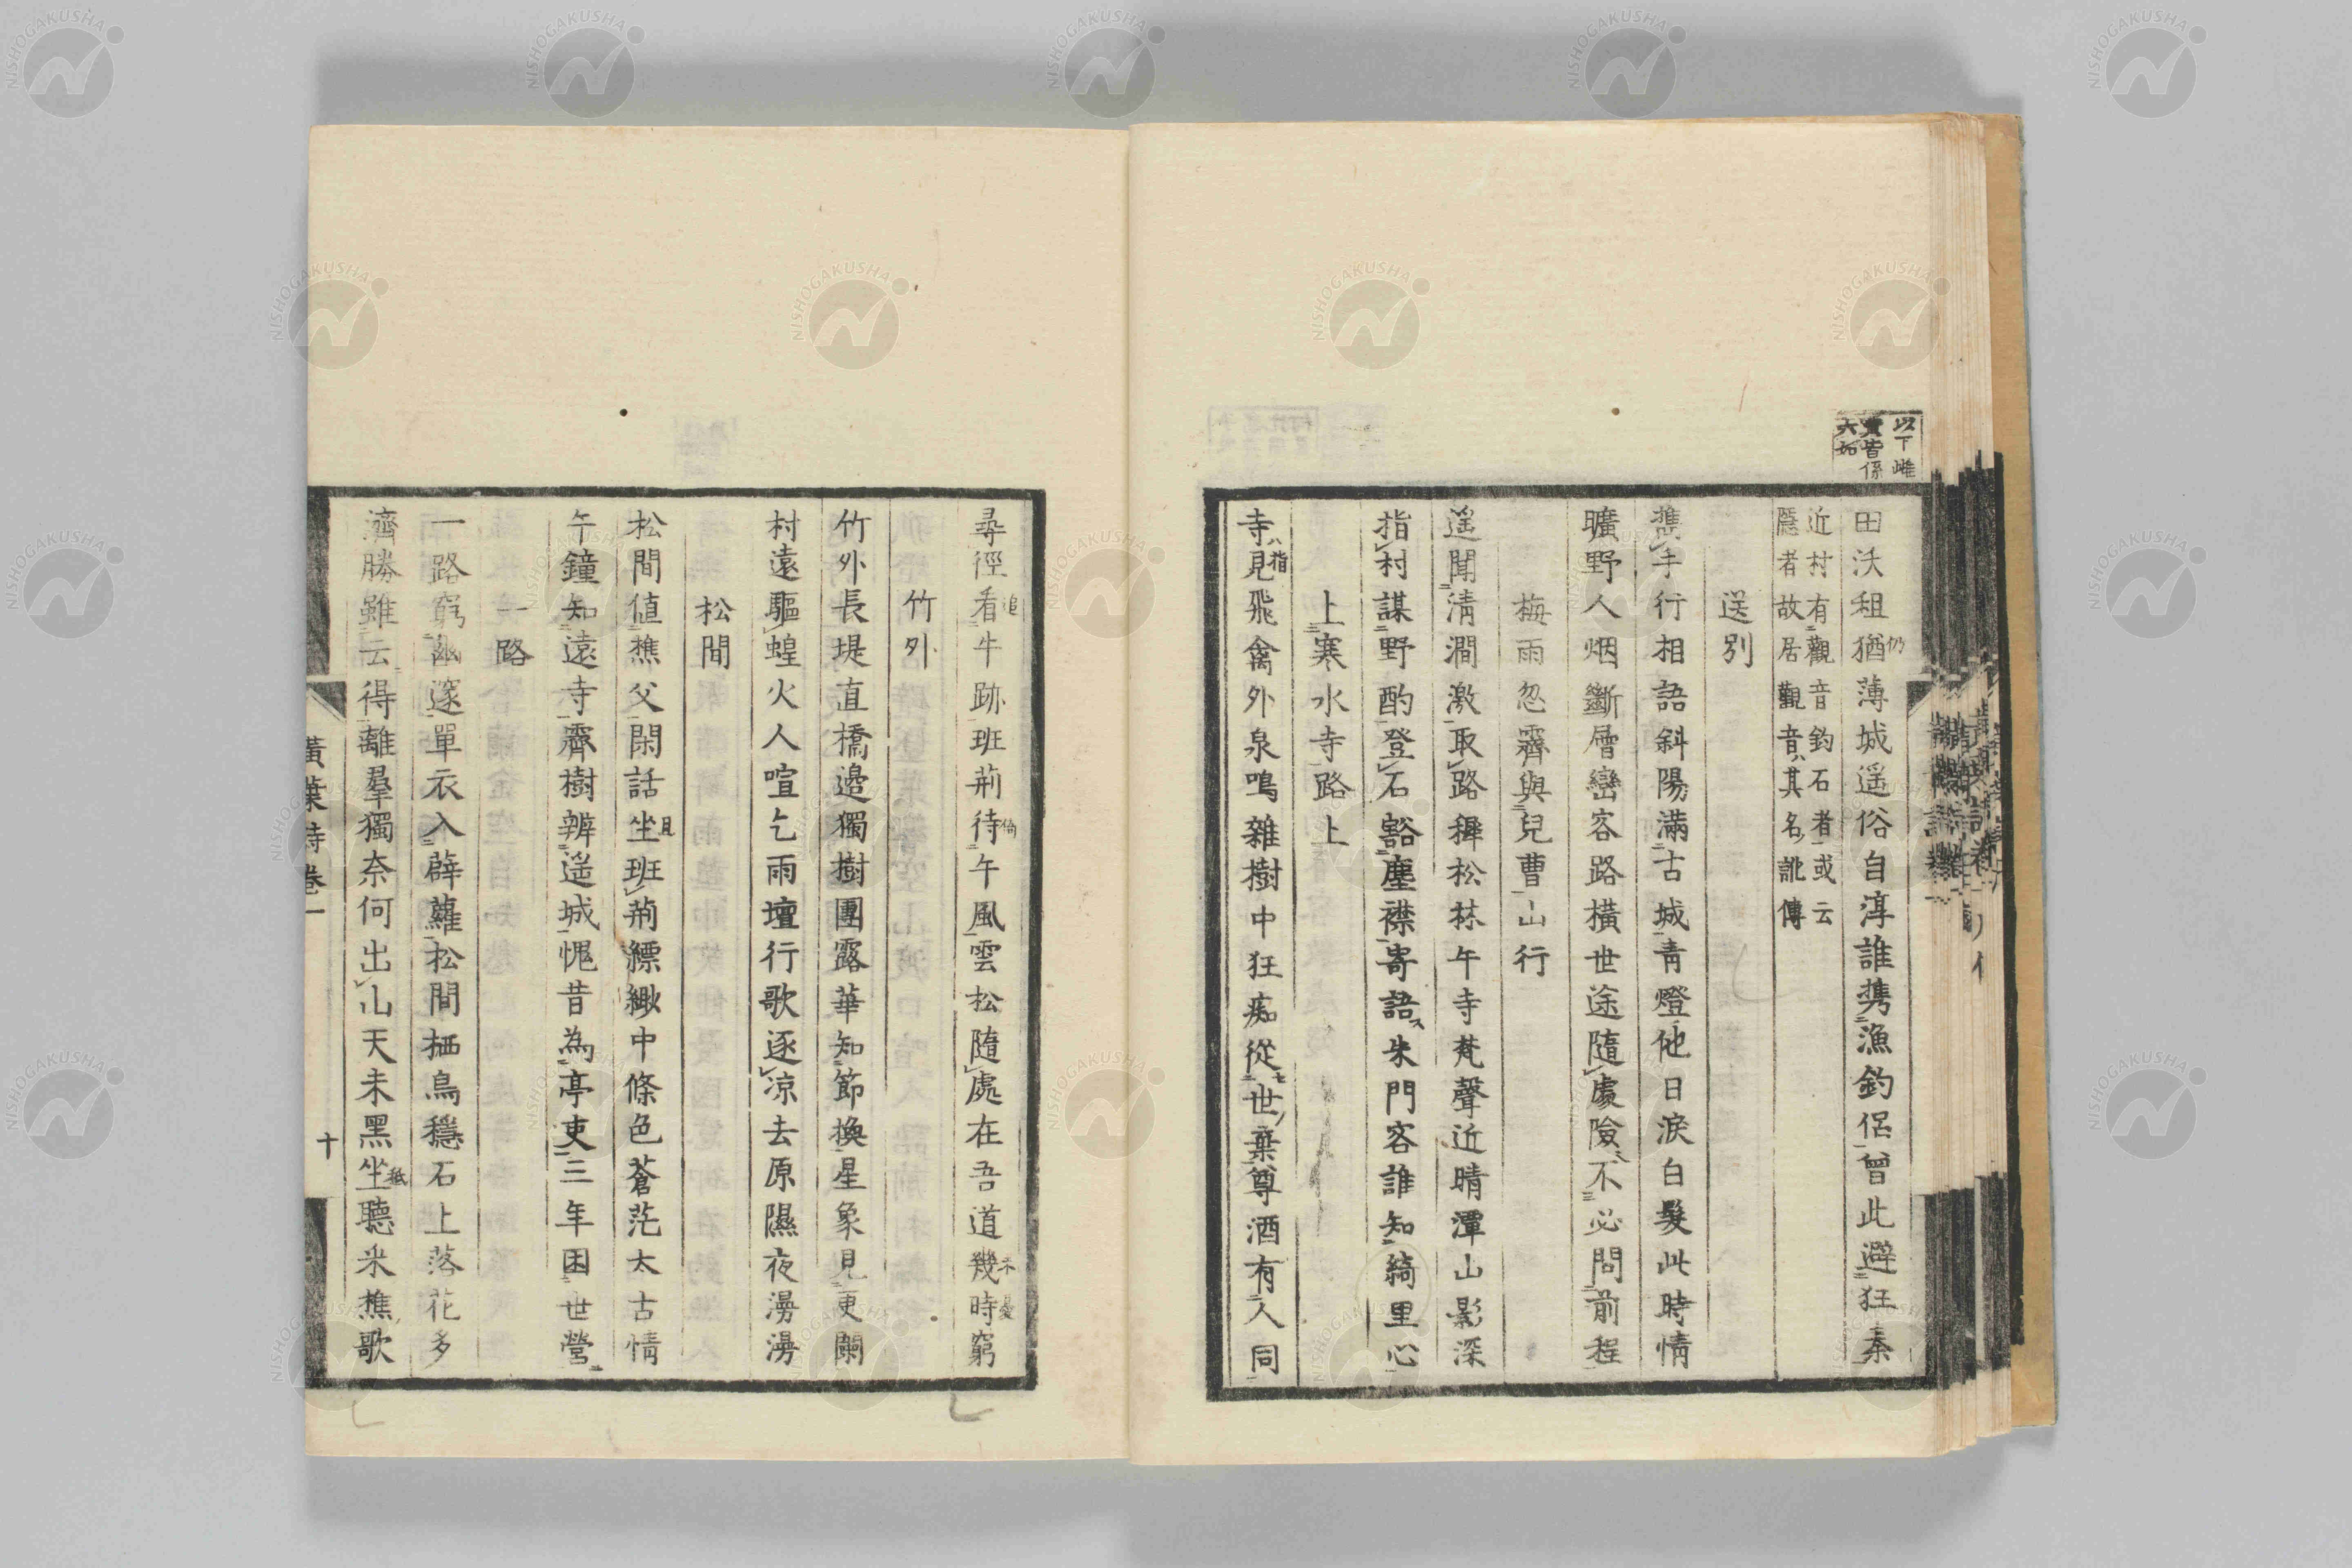 以下雌
黃皆係
六如
田沃租猶仍薄城遥俗自淳誰携漁釣侶曾此避狂秦
近村有觀音釣石者或云
隱者故居觀音其名訛傳
送別
携手行相語斜陽滿古城青燈他日淚白髮此時情
曠野人烟斷層巒客路橫世途隨處險不必問前程
梅雨忽霽與兒曹山行
遥聞清澗激取路稺松林午寺梵聲近晴潭山影深
指村謀野酌登石豁塵襟寄語朱門客誰知綺里心
上寒水寺路上
寺指見飛禽外泉鳴雜樹中狂痴從世棄尊酒有人同
尋徑看追牛跡班荊待倚午風雲松隨處在吾道幾時窮
竹外
竹外長堤直橋邉獨樹團露華知節換星象見更闌
村遠驅蝗火人喧乞雨壇行歌逐凉去原隰夜漫漫
松間
松間値樵父閑話坐且班荊縹緲中條色蒼茫太古情
午鐘知遠寺霽樹辨遥城愧昔為亭吏三年困世營
一路
一路窮幽邃單衣入薜蘿松間栖鳥穩石上落花多
濟勝雖云得離羣獨奈何出山天未黑坐聽采樵歌
黃葉 詩卷一
十